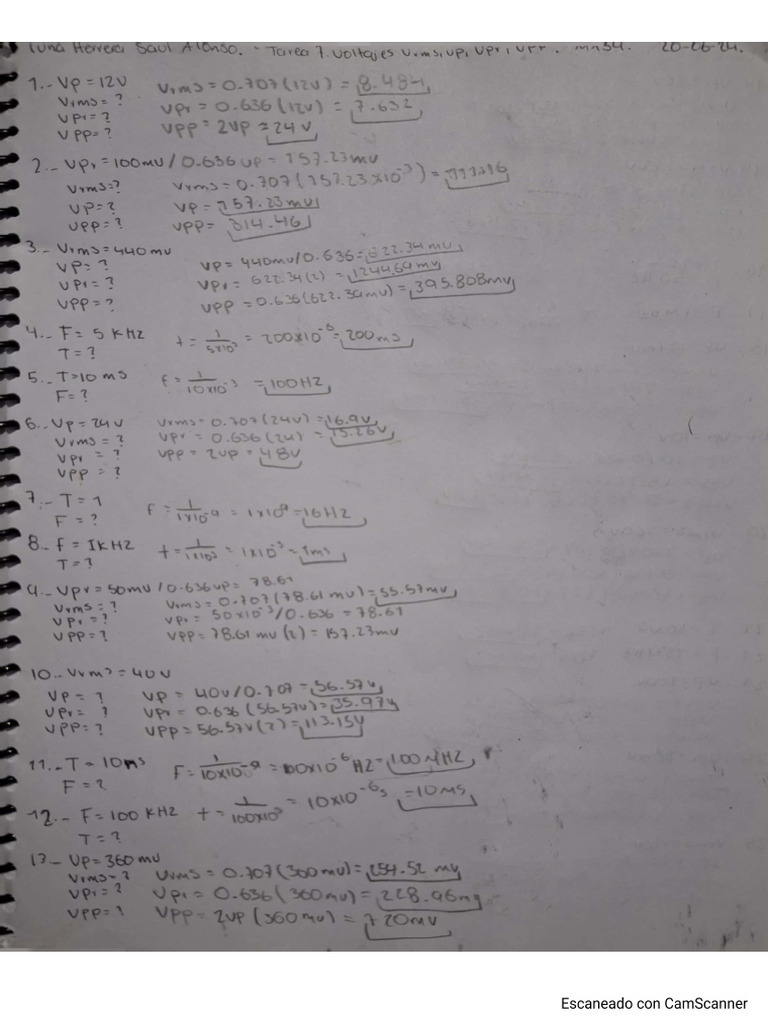 Luna Herrera Saul Alonso. - Tarea 7. Voltajes Vrms, Vp, Vpr, Vpp. 20-06-24.
1.- Vp = 12v Vrms = 0.707 (12v) = 8.484
Vrms = ? Vpr = 0.636 (12v) = 7.632
Vpr = ? Vpp = 2Vp = 24 v
Vpp = ?
2.- Vpr = 100mv / 0.636 Vp = 157.23mv
Vrms = ? Vrms = 0.707 (157.23 x10⁻³) =
Vp = ? Vp = 157.23 mv
Vpp = ? Vpp = 314.46
3.- Vrms = 440 mv
Vp = ? Vp = 440mv / 0.636 = 622.34 mv
Vpr = ? Vpr = 622.34 (2) = 1244.64 mv
Vpp = ? Vpp = 0.636 (622.34 mv) = 395.808mv
4.- F = 5 KHz t = 1/5x10³ = 200x10⁻⁶ = 200 ms
T = ?
5.- T = 10 ms f = 1/10x10⁻³ = 100 Hz
F = ?
6.- Vp = 24v Vrms = 0.707 (24v) = 16.9v
Vrms = ? Vpr = 0.636 (24) = 15.26v
Vpr = ? Vpp = 2Vp = 48v
Vpp = ?
7.- T = 1 f = 1/1x10⁻⁹ = 1x10⁹ = 1GHz
F = ?
8.- f = 1KHz t = 1/1x10³ = 1x10⁻³ = 1ms
T = ?
9.- Vpr = 50mv / 0.636 Vp = 78.61
Vrms = ? Vrms = 0.707 (78.61 mv) = 55.57mv
Vpr = ? Vpr = 50x10⁻³ / 0.636 = 78.61
Vpp = ? Vpp = 78.61 mv (2) = 157.23mv
10.- Vrms = 40v
Vp = ? Vp = 40v / 0.707 = 56.57v
Vpr = ? Vpr = 0.636 (56.57v) = 35.97v
Vpp = ? Vpp = 56.57v (2) = 113.15v
11.- T = 10ns F = 1/10x10⁻⁹ = 100x10⁻⁶ Hz = 100 MHz
F = ?
12.- F = 100 KHz t = 1/100x10³ = 10x10⁻⁶s = 10Ms
T = ?
13.- Vp = 360 mv
Vrms = ? Vrms = 0.707 (360 mv) = 254.52 mv
Vpr = ? Vpr = 0.636 (360mv) = 228.96mv
Vpp = ? Vpp = 2Vp (360 mv) = 720mv
Escaneado con CamScanner